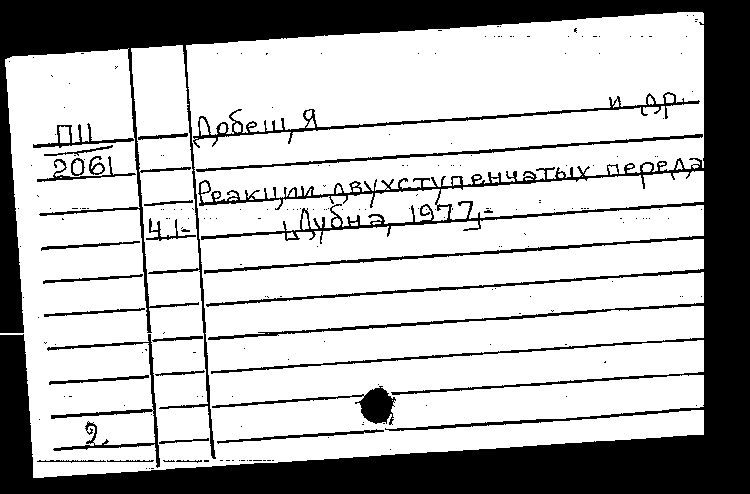 П11 Добеш, Я и др.
2061
Реакции двухступенчатых переда
4.1- [Дубна, 1977]-
2.